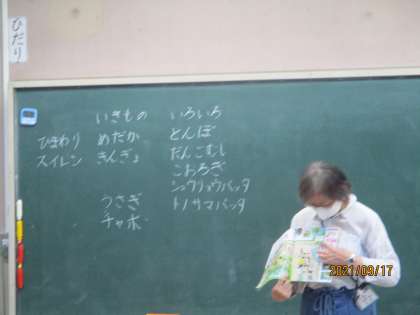 ひだり
いきもの いろいろ
ひまわり めだか とんぼ
スイレン きんぎょ だんごむし
こおろぎ
うさぎ ショウリョウバッタ
チャボ トノサマバッタ
2021/09/17